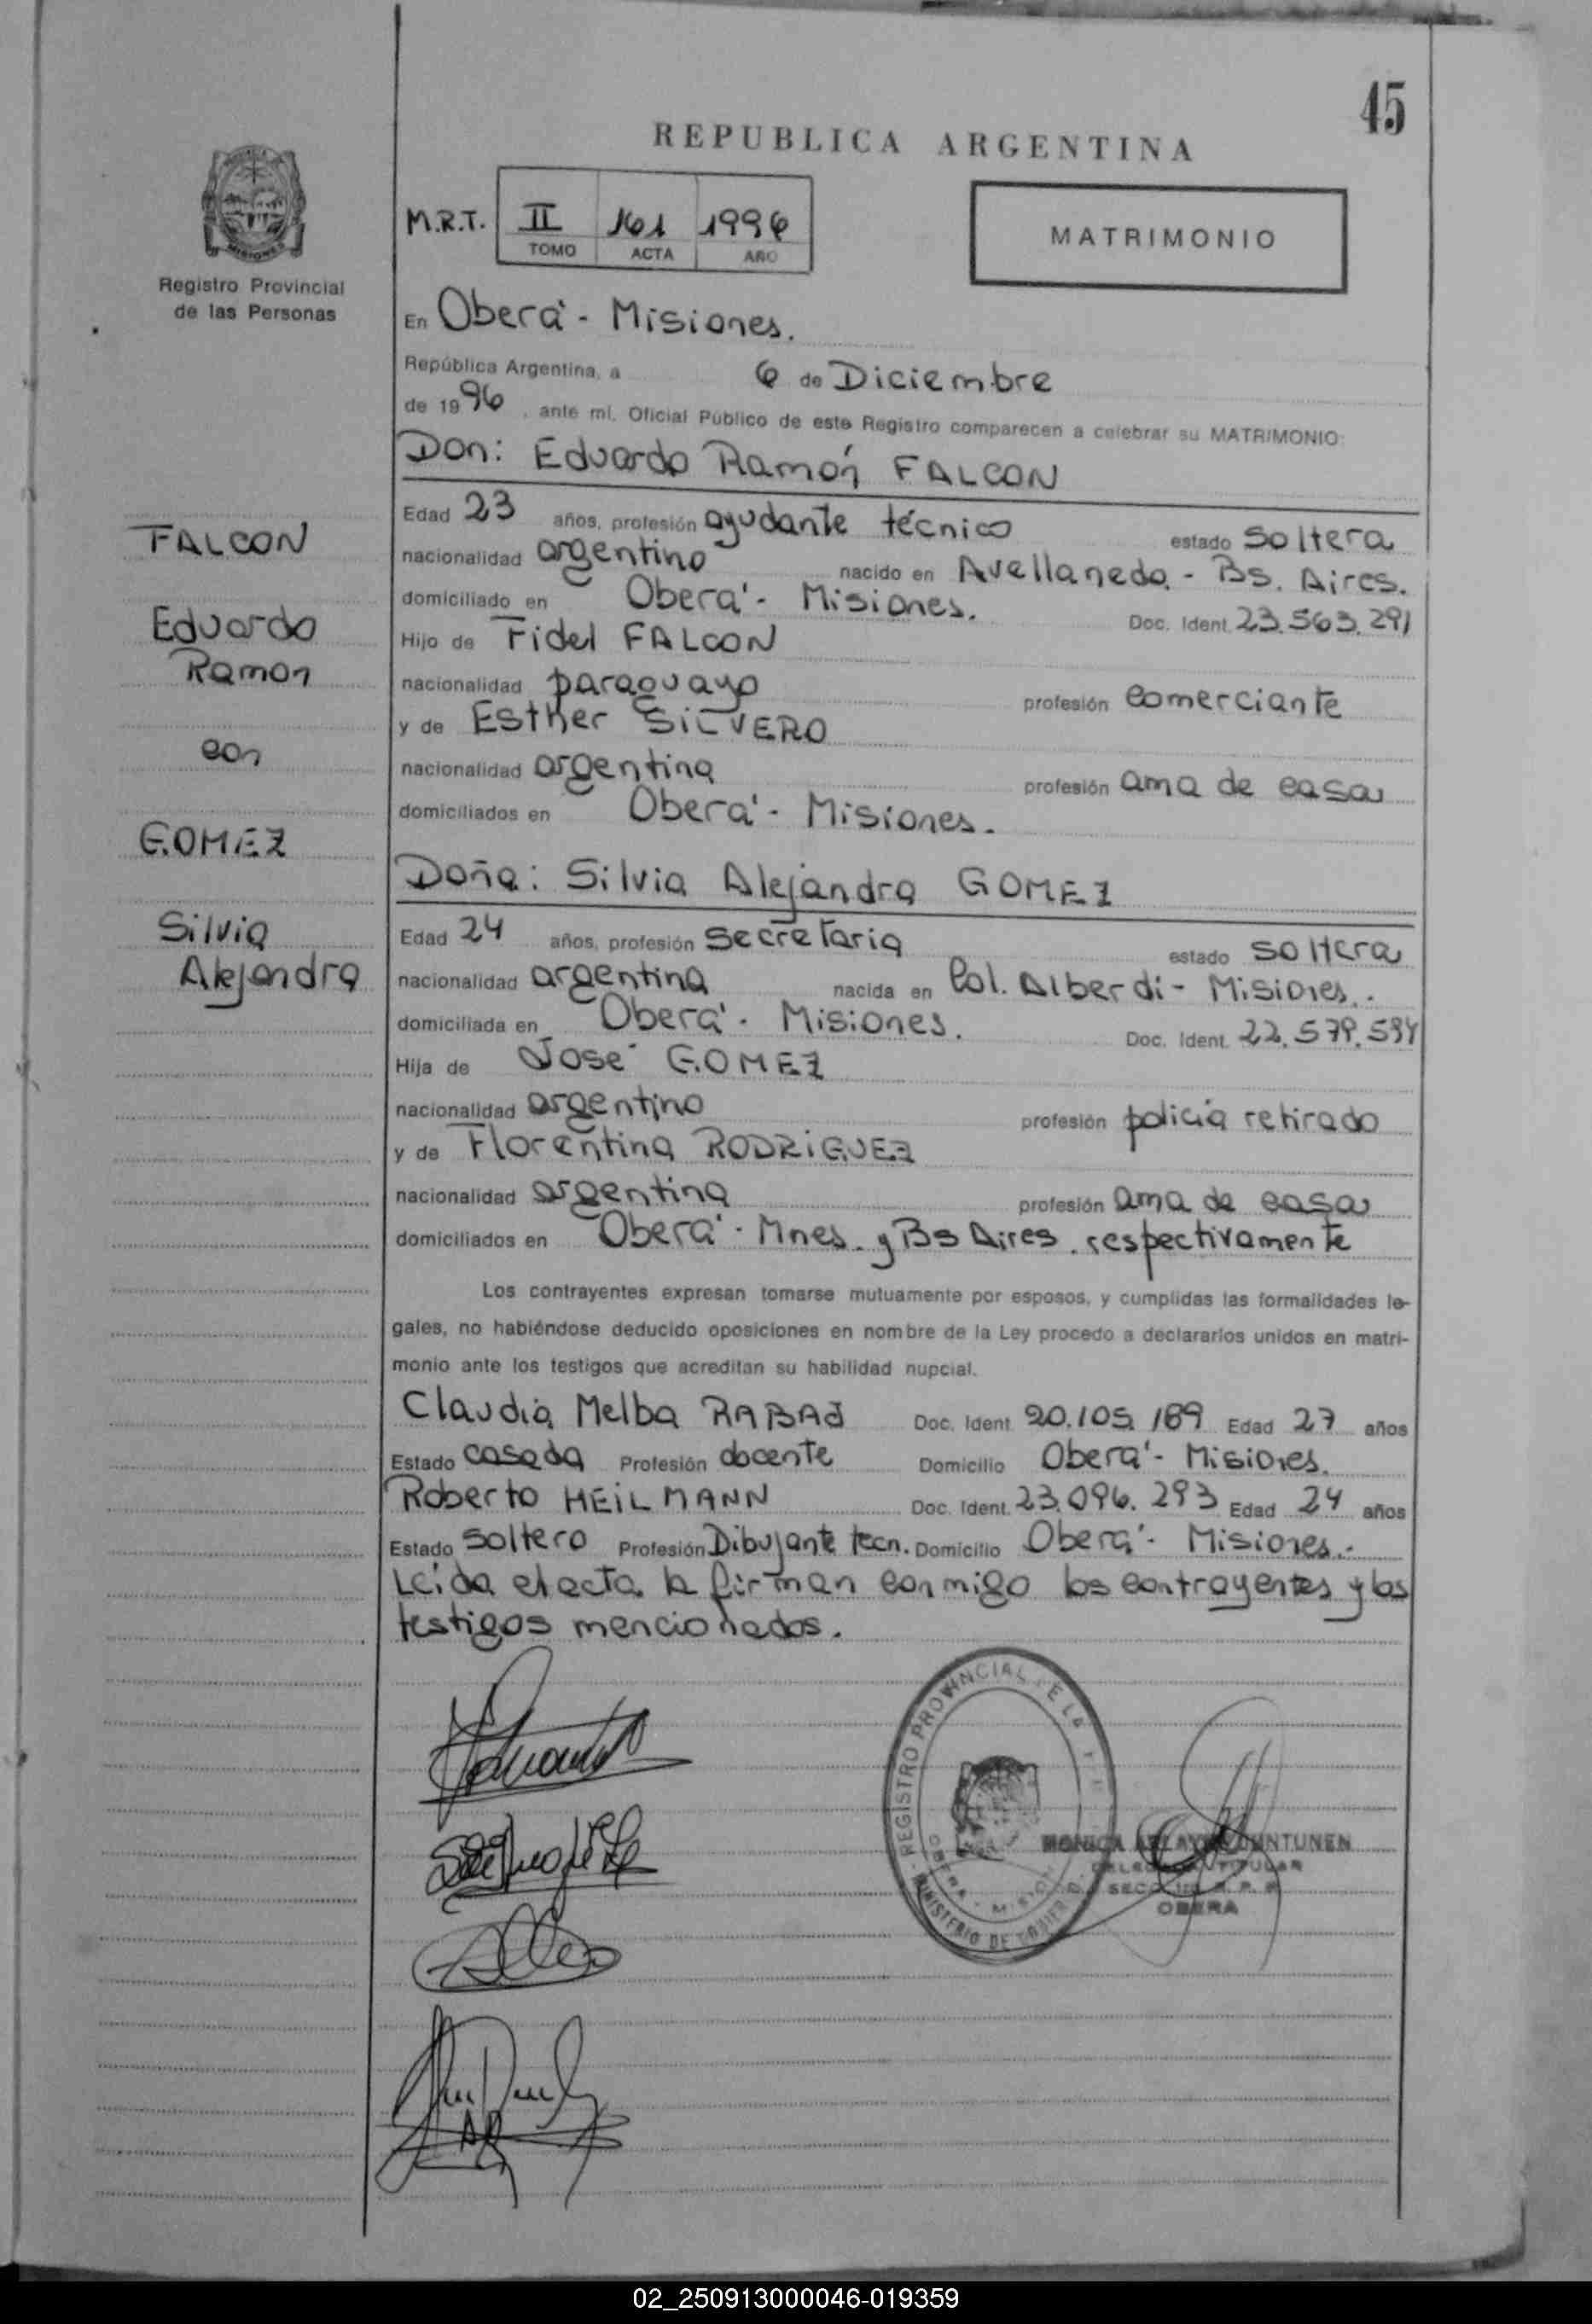 45
REPUBLICA ARGENTINA
M.R.T. II 161 1996
TOMO ACTA AÑO
MATRIMONIO
MISIONES
Registro Provincial
de las Personas
En Oberá - Misiones.
República Argentina, a 6 de Diciembre
de 1996, ante mí, Oficial Público de este Registro comparecen a celebrar su MATRIMONIO:
Don: Eduardo Ramón FALCON
Edad 23 años, profesión ayudante técnico estado soltera
FALCON
nacionalidad argentino nacido en Avellaneda - Bs. Aires.
domiciliado en Oberá - Misiones. Doc. Ident. 23.563.291
Eduardo
Hijo de Fidel FALCON
Ramon
nacionalidad paraguayo profesión comerciante
y de Esther SILVERO
con
nacionalidad argentina profesión ama de casa
domiciliados en Oberá - Misiones.
GOMEZ
Doña: Silvia Alejandra GOMEZ
Silvia
Edad 24 años, profesión secretaria estado soltera
Alejandra
nacionalidad argentina nacida en Col. Alberdi - Misiones.
domiciliada en Oberá - Misiones. Doc. Ident.
Hija de José GOMEZ
nacionalidad argentino profesión policía retirado
y de Florentina RODRIGUEZ
nacionalidad argentina profesión ama de casa
domiciliados en Oberá - Mnes. y Bs Aires. respectivamente
Los contrayentes expresan tomarse mutuamente por esposos, y cumplidas las formalidades le-
gales, no habiéndose deducido oposiciones en nombre de la Ley procedo a declararlos unidos en matri-
monio ante los testigos que acreditan su habilidad nupcial.
Claudia Melba RABAJ Doc. Ident. 20.105.189 Edad 27 años
Estado casada Profesión docente Domicilio Oberá - Misiones.
Roberto HEILMANN Doc. Ident. 23.096.293 Edad 24 años
Estado soltero Profesión Dibujante tecn. Domicilio Oberá - Misiones.
Leída el acta la firman conmigo los contrayentes y los
testigos mencionados.
REGISTRO PROVINCIAL DE LA
MINISTERIO DE GOBIERNO
OBERA - MISIONES
MONICA
DELEGADA TITULAR
OBERA
02_250913000046-019359